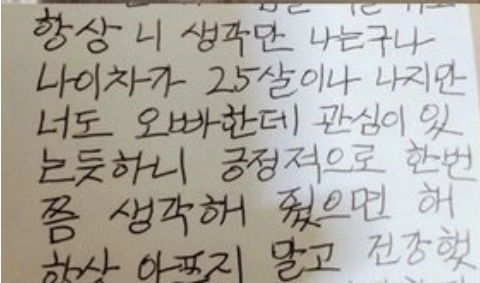 항상 니 생각만 나는구나
나이차가 25살이나 나지만
너도 오빠한데 관심이 있
는듯하니 긍정적으로 한번
쯤 생각해 줬으면 해
항상 아프지 말고 건강했